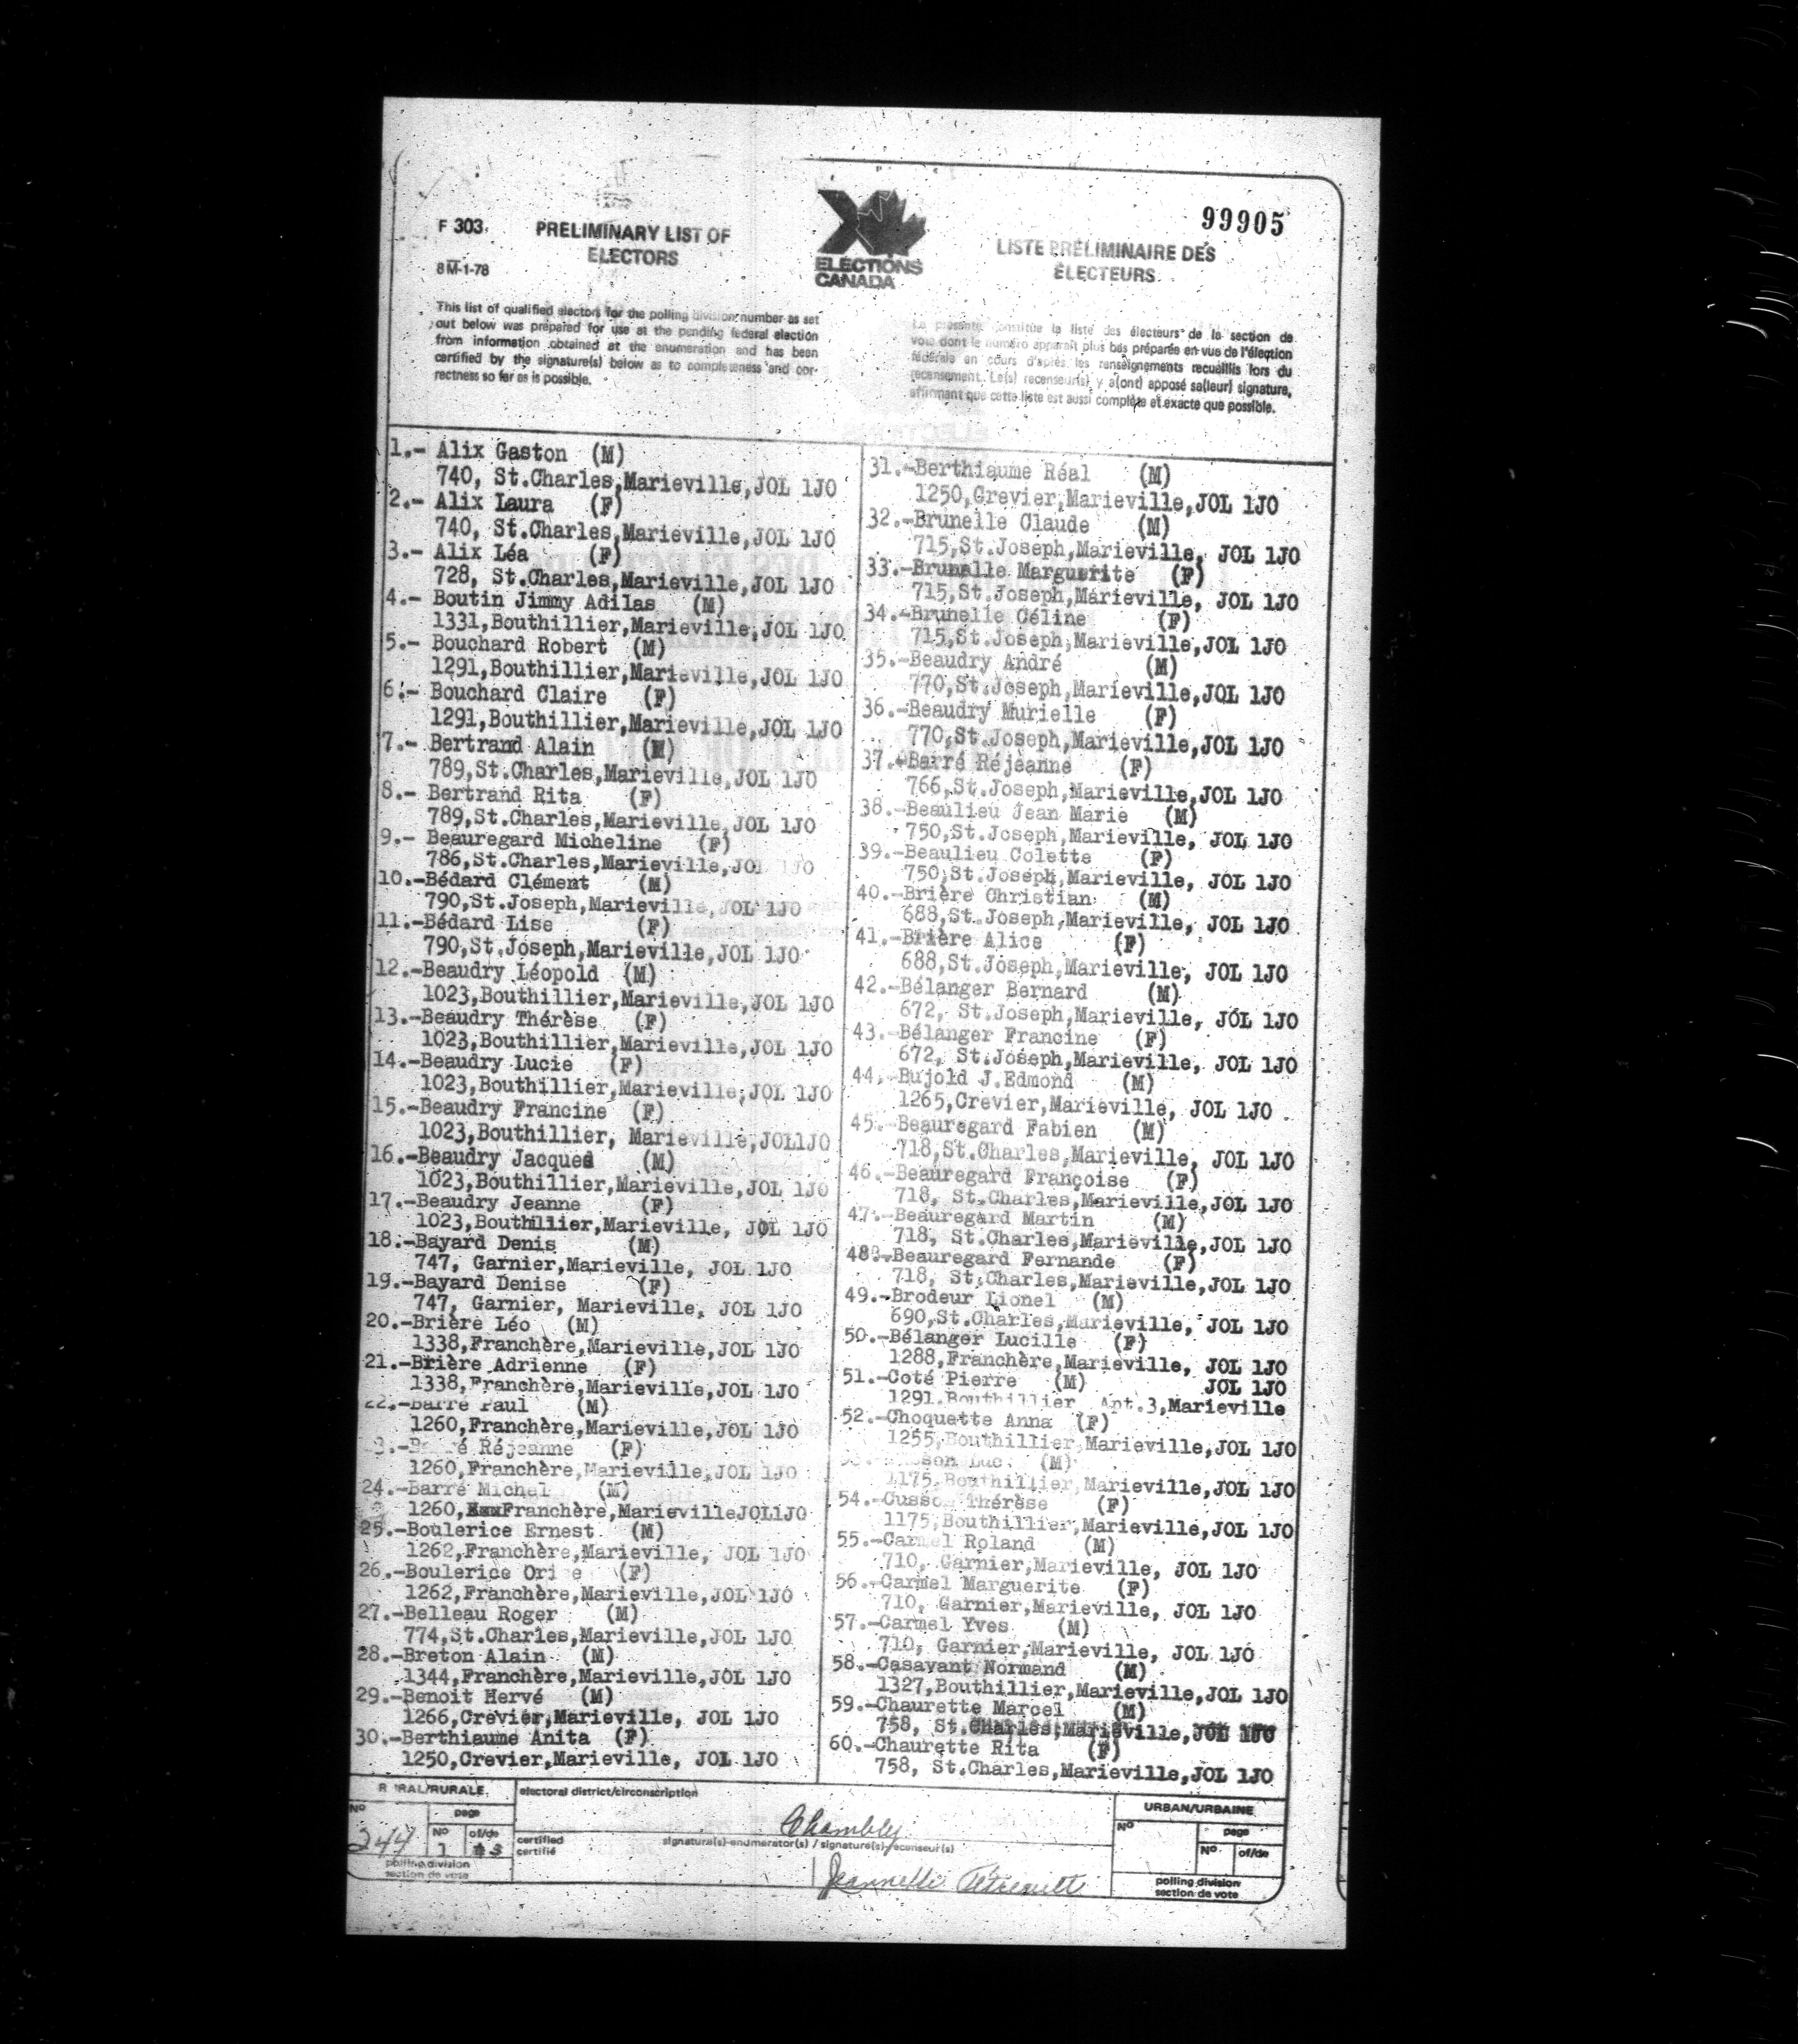 99905
F 303.
8M-1-78
PRELIMINARY LIST OF
ELECTORS
ELECTIONS
CANADA
LISTE PRÉLIMINAIRE DES
ÉLECTEURS
This list of qualified electors for the polling division number as set
out below was prepared for use at the pending federal election
from information obtained at the enumeration and has been
certified by the signature(s) below as to completeness and cor-
rectness so far as is possible.
La présente constitue la liste des électeurs de la section de
vote dont le numéro apparaît plus bas préparée en vue de l'élection
fédérale en cours d'après les renseignements recueillis lors du
recensement. Le(s) recenseur(s) y a(ont) apposé sa(leur) signature,
affirmant que cette liste est aussi complète et exacte que possible.
1.- Alix Gaston (M)
740, St.Charles,Marieville,JOL 1JO
2.- Alix Laura (F)
740, St.Charles,Marieville,JOL 1JO
3.- Alix Léa (F)
728, St.Charles,Marieville,JOL 1JO
4.- Boutin Jimmy Adilas (M)
1331,Bouthillier,Marieville,JOL 1JO
5.- Bouchard Robert (M)
1291,Bouthillier,Marieville,JOL 1JO
6.- Bouchard Claire (F)
1291,Bouthillier,Marieville,JOL 1JO
7.- Bertrand Alain (M)
789,St.Charles,Marieville,JOL 1JO
8.- Bertrand Rita (F)
789,St.Charles,Marieville,JOL 1JO
9.- Beauregard Micheline (F)
786,St.Charles,Marieville,JOL 1JO
10.-Bédard Clément (M)
790,St.Joseph,Marieville,JOL 1JO
11.-Bédard Lise (F)
790,St.Joseph,Marieville,JOL 1JO
12.-Beaudry Léopold (M)
1023,Bouthillier,Marieville,JOL 1JO
13.-Beaudry Thérèse (F)
1023,Bouthillier,Marieville,JOL 1JO
14.-Beaudry Lucie (F)
1023,Bouthillier,Marieville,JOL 1JO
15.-Beaudry Francine (F)
1023,Bouthillier, Marieville,JOL1JO
16.-Beaudry Jacques (M)
1023,Bouthillier,Marieville,JOL 1JO
17.-Beaudry Jeanne (F)
1023,Bouthillier,Marieville, JOL 1JO
18.-Bayard Denis (M)
747, Garnier,Marieville, JOL 1JO
19.-Bayard Denise (F)
747, Garnier, Marieville, JOL 1JO
20.-Brière Léo (M)
1338,Franchère,Marieville,JOL 1JO
21.-Brière Adrienne (F)
1338,Franchère,Marieville,JOL 1JO
22.-Barré Paul (M)
1260,Franchère,Marieville,JOL 1JO
3.-Barré Réjeanne (F)
1260,Franchère,Marieville,JOL 1JO
24.-Barré Michel (M)
1260,Franchère,MarievilleJOL1JO
25.-Boulerice Ernest (M)
1262,Franchère,Marieville, JOL 1JO
26.-Boulerice (F)
1262,Franchère,Marieville,JOL 1JO
27.-Belleau Roger (M)
774,St.Charles,Marieville,JOL 1JO
28.-Breton Alain (M)
1344,Franchère,Marieville,JOL 1JO
29.-Benoit Hervé (M)
1266,Crevier,Marieville, JOL 1JO
30.-Berthiaume Anita (F)
1250,Crevier,Marieville, JOL 1JO
31.-Berthiaume Réal (M)
1250,Grevier,Marieville,JOL 1JO
32.-Brunelle Claude (M)
715,St.Joseph,Marieville, JOL 1JO
33.-Brunelle Marguerite (F)
715,St.Joseph,Marieville, JOL 1JO
34.-Brunelle Céline (F)
715,St.Joseph,Marieville,JOL 1JO
35.-Beaudry André (M)
770,St.Joseph,Marieville,JOL 1JO
36.-Beaudry Murielle (F)
770,St.Joseph,Marieville,JOL 1JO
37.-Barré Réjeanne (F)
766,St.Joseph,Marieville,JOL 1JO
38.-Beaulieu Jean Marie (M)
750,St.Joseph,Marieville, JOL 1JO
39.-Beaulieu Colette (F)
750,St.Joseph,Marieville, JOL 1JO
40.-Brière Christian (M)
688,St.Joseph,Marieville, JOL 1JO
41.-Brière Alice (F)
688,St.Joseph,Marieville, JOL 1JO
42.-Bélanger Bernard (M)
672, St.Joseph,Marieville, JOL 1JO
43.-Bélanger Francine (F)
672, St.Joseph,Marieville, JOL 1JO
44.-Bujold J.Edmond (M)
1265,Crevier,Marieville, JOL 1JO
45.-Beauregard Fabien (M)
718,St.Charles,Marieville, JOL 1JO
46.-Beauregard Françoise (F)
718, St.Charles,Marieville,JOL 1JO
47.-Beauregard Martin (M)
718, St.Charles,Marieville,JOL 1JO
48.-Beauregard Fernande (F)
718, St.Charles,Marieville,JOL 1JO
49.-Brodeur Lionel (M)
690,St.Charles,Marieville, JOL 1JO
50.-Bélanger Lucille (F)
1288,Franchère,Marieville, JOL 1JO
51.-Coté Pierre (M) JOL 1JO
1291,Bouthillier, Apt.3,Marieville
52.-Choquette Anna (F)
1255,Bouthillier,Marieville,JOL 1JO
Luc (M)
1175,Bouthillier,Marieville,JOL 1JO
54.-Cusson Thérèse (F)
1175,Bouthillier,Marieville,JOL 1JO
55.-Carmel Roland (M)
710, Garnier,Marieville, JOL 1JO
56.-Carmel Marguerite (F)
710, Garnier,Marieville, JOL 1JO
57.-Carmel Yves (M)
710, Garnier,Marieville, JOL 1JO
58.-Casavant Normand (M)
1327,Bouthillier,Marieville,JOL 1JO
59.-Chaurette Marcel (M)
758, St.Charles,Marieville,JOL 1JO
60.-Chaurette Rita (F)
758, St.Charles,Marieville,JOL 1JO
RURAL/RURALE
No
244
page
No
1
of/de
3
polling division
section de vote
electoral district/circonscription
Chambly
certified
certifié
signature(s)-enumerator(s) / signature(s)-recenseur(s)
Jeannette Tétreault
URBAN/URBAINE
No
page
No
of/de
polling division
section de vote